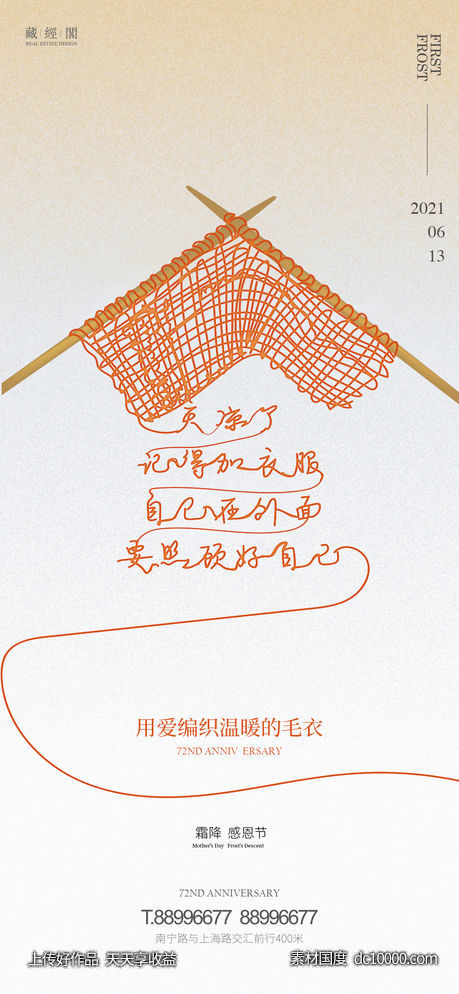 藏 經 閣
REAL ESTATE DESIGN
FIRST
FROST
2021
06
13
天凉了
记得加衣服
自己在外面
要照顾好自己
用爱编织温暖的毛衣
72ND ANNIV ERSARY
霜降 感恩节
Mother's Day Frost's Descent
72ND ANNIVERSARY
T.88996677 88996677
南宁路与上海路交汇前行400米
上传好作品 天天享收益
素材国度 dc10000.com